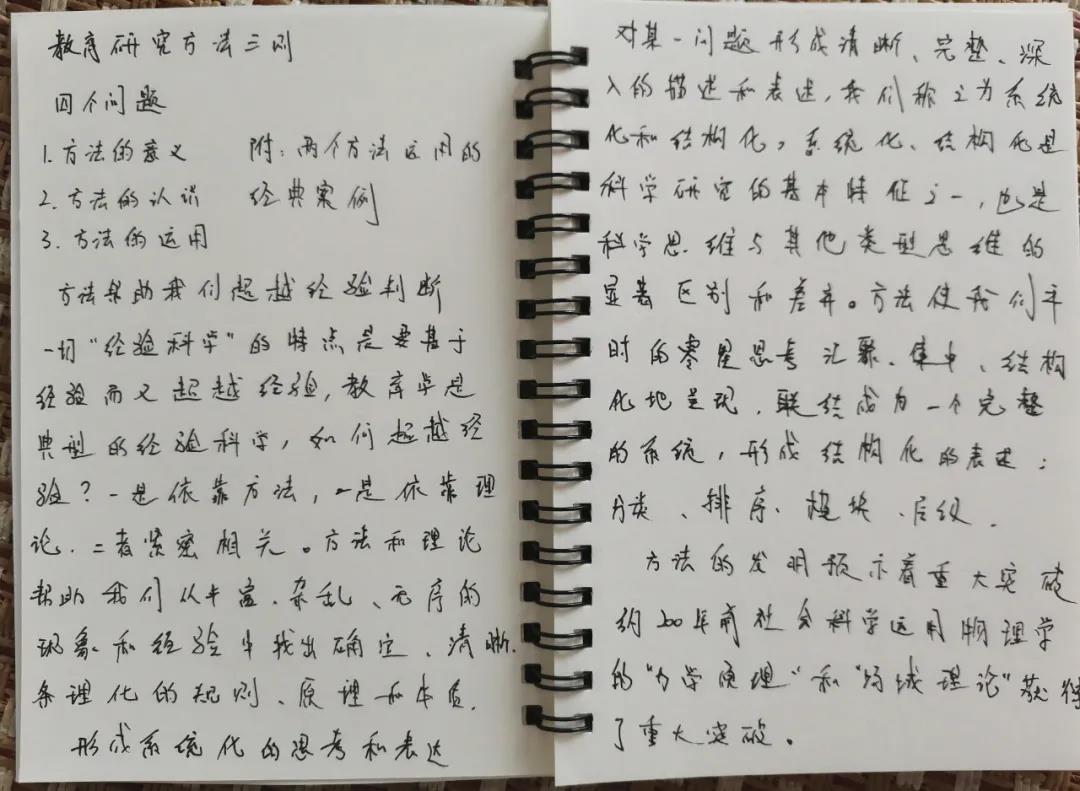 教育研究方法三则
四个问题
1.方法的意义 附:两个方法运用的
2.方法的认识 经典案例
3.方法的运用
方法帮助我们超越经验判断
一切“经验科学”的特点是要基于
经验而又超越经验,教育学是
典型的经验科学,如何超越经
验?一是依靠方法,一是依靠理
论.二者紧密相关。方法和理论
帮助我们从丰富、杂乱、无序的
现象和经验中找出确定、清晰.
条理化的规则、原理和本质.
形成系统化的思考和表达
对某一问题形成清晰、完整、深
入的描述和表述,我们称之为系统
化和结构化,系统化、结构化是
科学研究的基本特征之一,也是
科学思维与其他类型思维的
显著区别和差异。方法使我们平
时的零星思考汇聚、集中、结构
化地呈现.联结成为一个完整
的系统,形成结构化的表述:
分类、排序、模块、层级.
方法的发明预示着重大突破
约200年前社会科学运用物理学
的“力学原理”和“场域理论”获得
了重大突破。